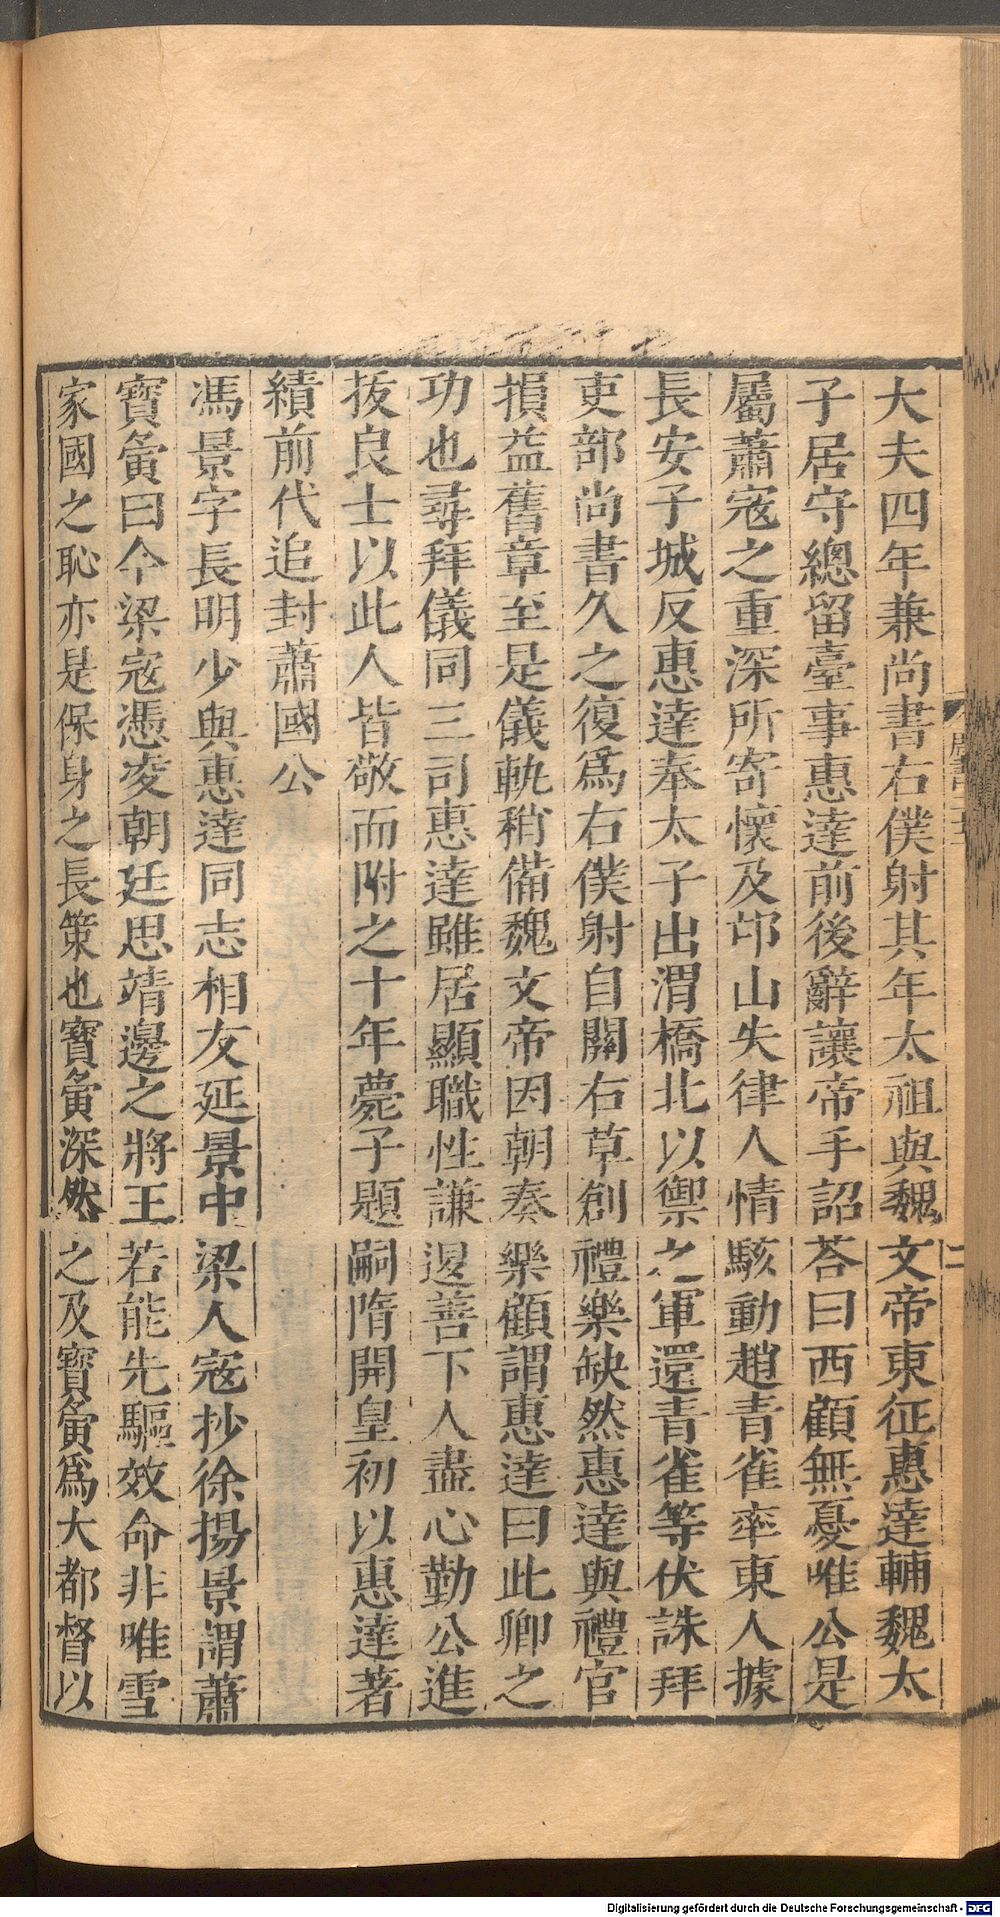 大夫四年兼尚書右僕射其年太祖與魏文帝東征惠達輔魏太
子居守總留臺事惠達前後辭讓帝手詔荅曰西顧無憂唯公是
屬蕭寇之重深所寄懷及邙山失律人情駭動趙青雀率東人據
長安子城反惠達奉太子出渭橋北以禦之軍還青雀等伏誅拜
吏部尚書久之復爲右僕射自關右草創禮樂缺然惠達與禮官
損益舊章至是儀軌稍備魏文帝因朝奏樂顧謂惠達曰此卿之
功也尋拜儀同三司惠達雖居顯職性謙退善下人盡心勤公進
拔良士以此人皆敬而附之十年薨子題嗣隋開皇初以惠達著
績前代追封蕭國公
馮景字長明少與惠達同志相友延景中梁人寇抄徐揚景謂蕭
寶夤曰今梁寇憑凌朝廷思靖邊之將王若能先驅效命非唯雪
家國之恥亦是保身之長策也寶夤深然之及寶夤爲大都督以
Digitalisierung gefördert durch die Deutsche Forschungsgemeinschaft - DFG